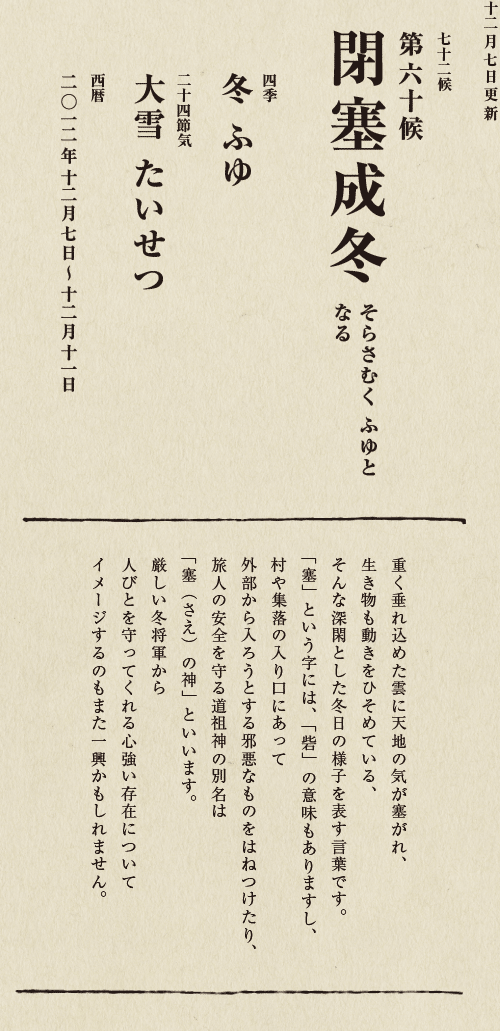 十二月七日更新
七十二候
第六十候
閉塞成冬
そらさむく ふゆと
なる
四季
冬 ふゆ
二十四節気
大雪 たいせつ
西暦
二〇一二年十二月七日〜十二月十一日
重く垂れ込めた雲に天地の気が塞がれ、
生き物も動きをひそめている、
そんな深閑とした冬日の様子を表す言葉です。
「塞」という字には、「砦」の意味もありますし、
村や集落の入り口にあって
外部から入ろうとする邪悪なものをはねつけたり、
旅人の安全を守る道祖神の別名は
「塞（さえ）の神」といいます。
厳しい冬将軍から
人びとを守ってくれる心強い存在について
イメージするのもまた一興かもしれません。